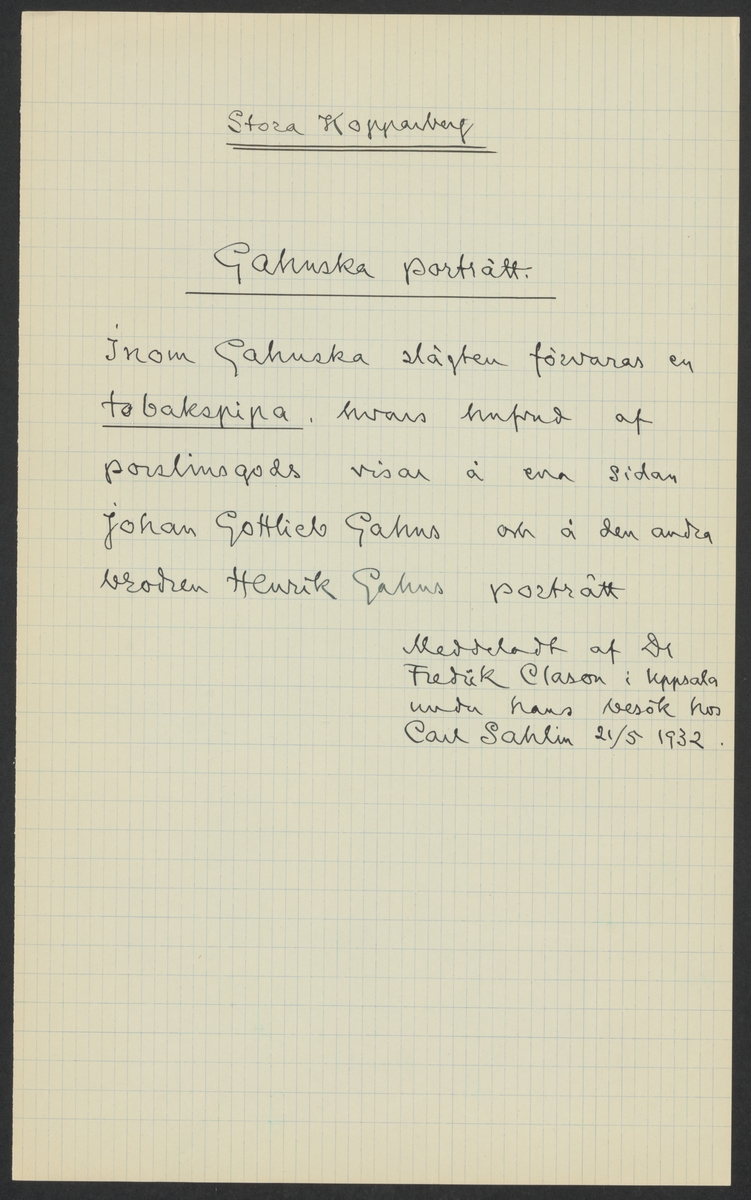 Stora Kopparberg
Gahnska porträtt.
Inom Gahnska slägten förvaras en
tobakspipa, hvars hufvud af
porslinsgods visar å ena sidan
Johan Gottlieb Gahns och å den andra
brodren Henrik Gahns porträtt
Meddeladt af Dr
Fredrik Clason i Uppsala
under hans besök hos
Carl Sahlin 21/5 1932.